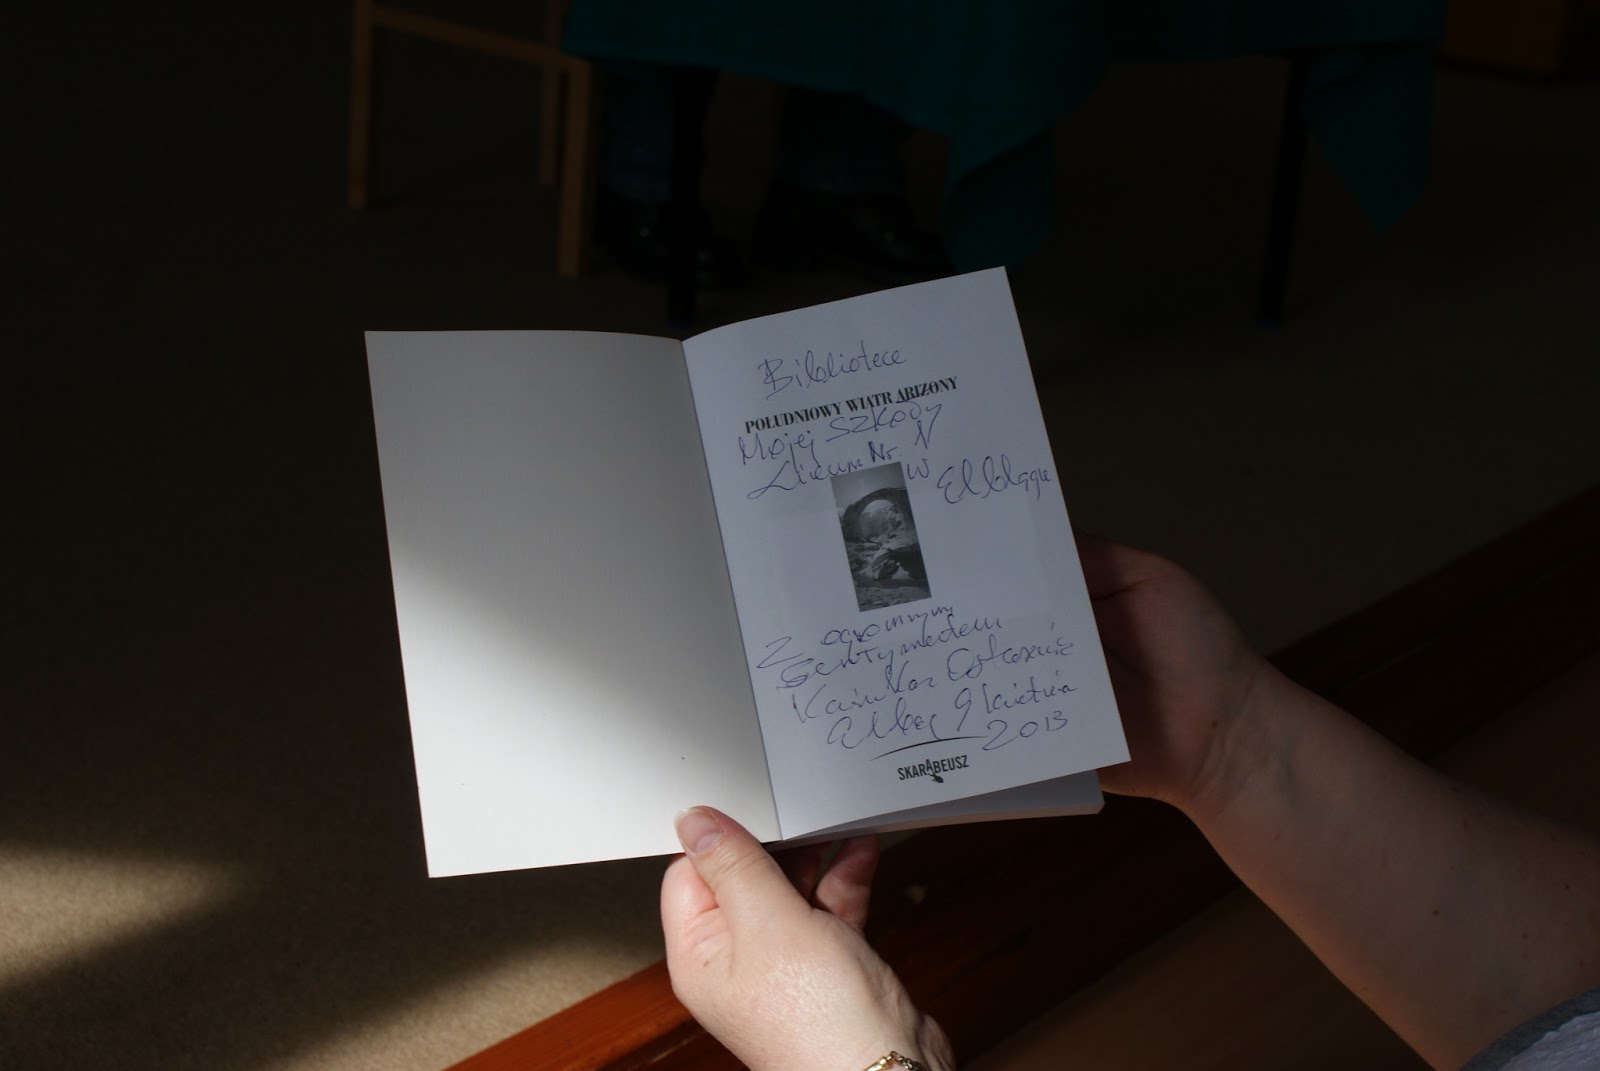 Bibliotece
POŁUDNIOWY WIATR ARIZONY
Mojej Szkoły
Liceum Nr. IV w Elblągu
z ogromnym
sentymentem
Elbląg 9 kwietnia
2013
SKARABEUSZ